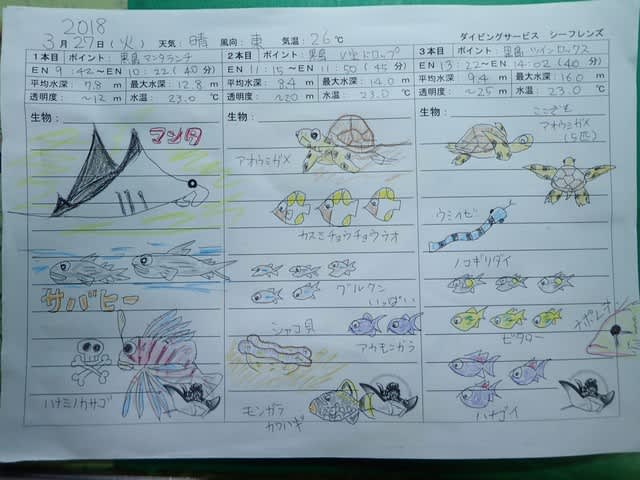 2018
3月27日(火) 天気:晴 風向:東 気温:26℃ ダイビングサービス シーフレンズ
1本目 ポイント:黒島マンタランチ
EN 9:42〜EN 10:22(40分)
平均水深:7.8m 最大水深:12.8m
透明度:〜12m 水温:23.0℃
生物:
マンタ
サバヒー
ハナミノカサゴ
2本目 ポイント:黒島 V字ドロップ
EN 11:15〜EN 11:50(45分)
平均水深:8.4m 最大水深:14.0m
透明度:〜20m 水温:23.0℃
生物:
アオウミガメ
カスミチョウチョウウオ
グルクン
いっぱい
シャコ貝
アカモンガラ
モンガラ
カワハギ
3本目 ポイント:黒島ツインロックス
EN 13:22〜EN 14:02(40分)
平均水深:9.4m 最大水深:16.0m
透明度:〜25m 水温:23.0℃
生物:
アオウミガメ
(5匹)
ウミヘビ
ノコギリダイ
ハナゴイ